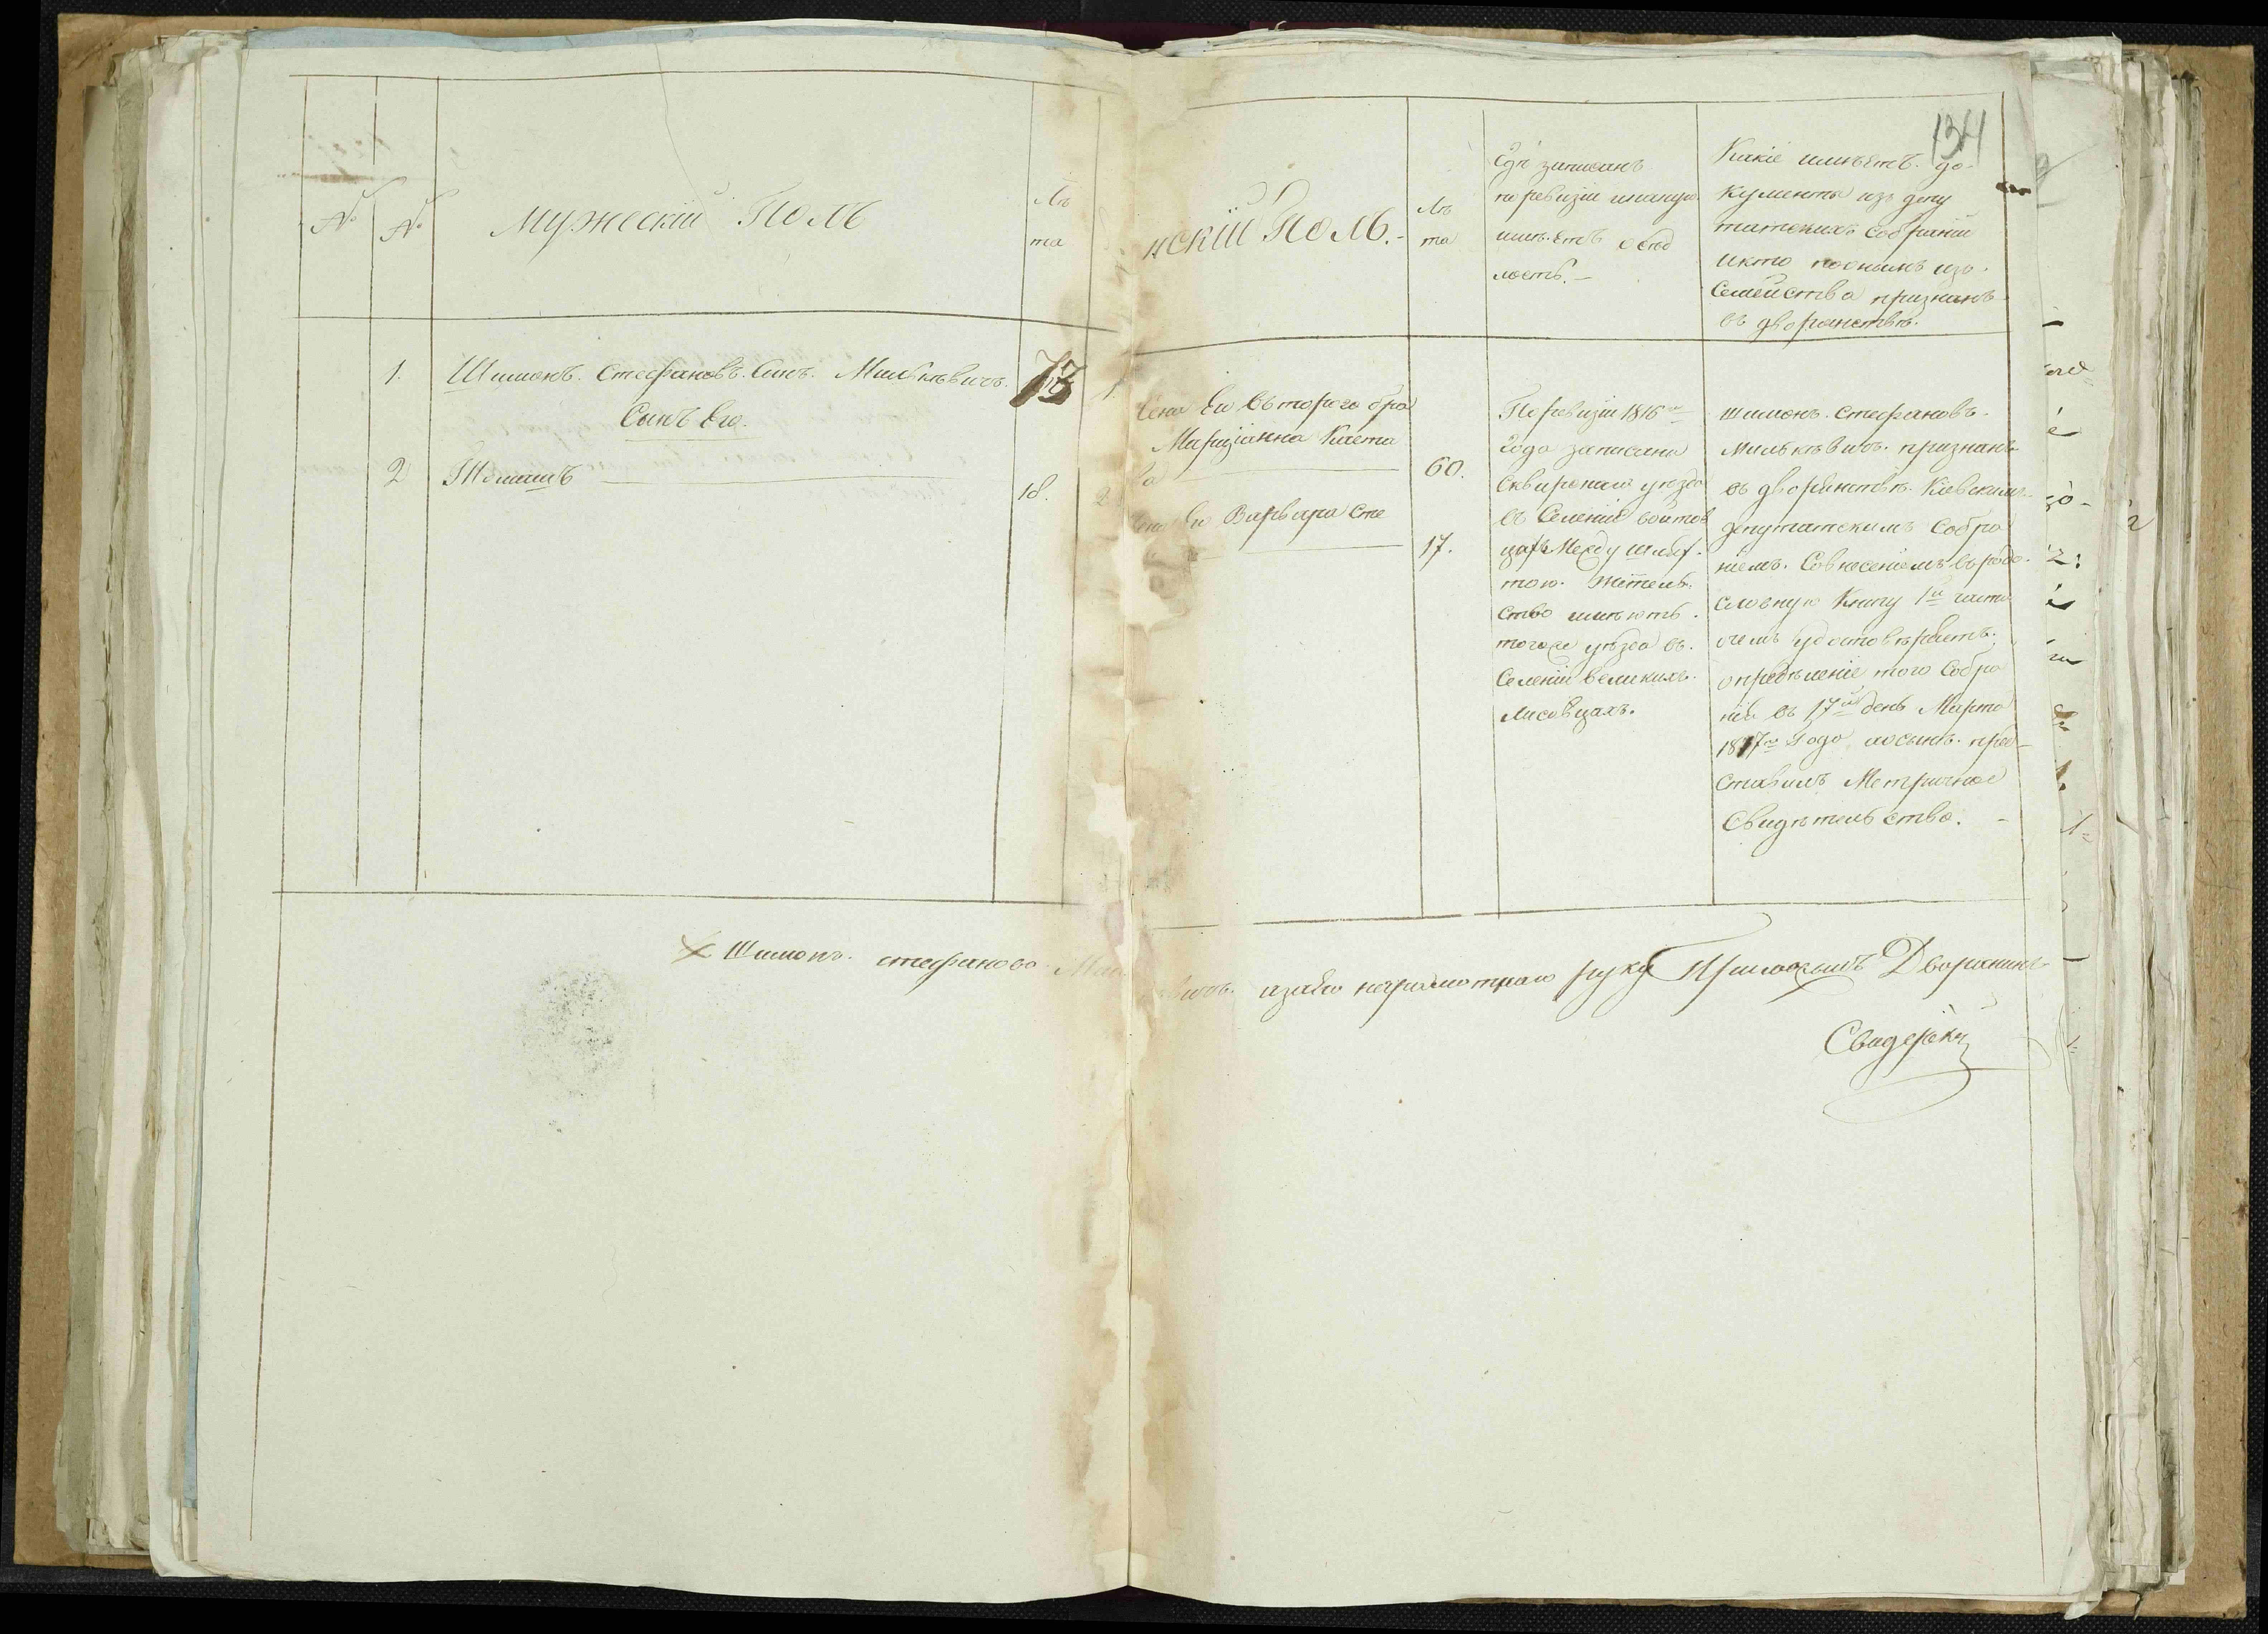 134
№ № мужеский Полъ Лѣ
та
нскій Полъ.- Лѣ
та
Гдѣ записанъ
по ревизіи инаную
имѣетъ осѣд
лость.-
Какіе имѣетъ до-
кументы изъ депу
татскихъ собраній
икто поонымъ изъ
Семейства признанъ
въ дворянствѣ.
1. Шимонъ. Стефановъ. Синъ. Милькѣвичъ. 73
Сынъ Его.
2 Томашъ 18.
1. Жена Ево Второго бра
Марціанна Каета
60.
2 Жена Ево Варвара Сте
17.
По ревизіи 1816го
Года записаны
Сквирскаго уѣзда
въ Селеніи войтов
цахъ Между шлях-
тою. Жител-
ство имѣютъ.
тогоже уѣзда въ.
Селеніи великихъ.
лисовцахъ.
Шимонъ. Стефановъ.
Милькѣвичъ. признанъ
въ дворянствѣ. Кіевскимъ
депутатскимъ Собра
ніемъ. Совнесеніемъ въ родо-
словную Книгу 1ю часть
очемъ удостовѣряетъ.
опредѣленіе того Собра
нія въ 17й день Марта
1817го Года, а сынъ. пред-
ставилъ Метричное
Свидѣтельство. -
Х Шимонъ. стефановъ Миль вичъ. азаево неграмотнаго руку Приложилъ Дворянинъ
Свидерскій